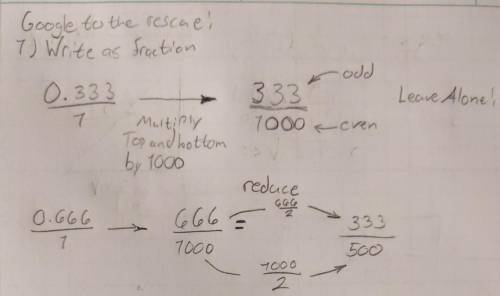 Google to the rescue!
1) Write as fraction
0.333 / 1 → 333 / 1000
odd
even
Leave Alone!
Multiply
Top and bottom
by 1000
reduce
0.666 / 1 → 666 / 1000 = 333 / 500
666 / 2
1000 / 2